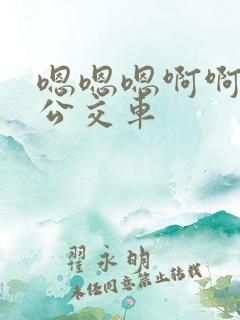 嗯嗯嗯啊啊
公交车
翟永明
未经同意禁止转载